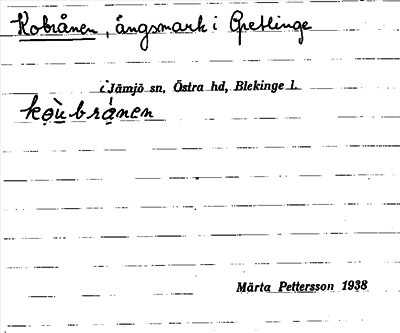 Kobrånen, ängsmark i Gretlinge
i Jämjö sn, Östra hd, Blekinge l.
kọ̀u̯brạ̀nen
Märta Pettersson 1938